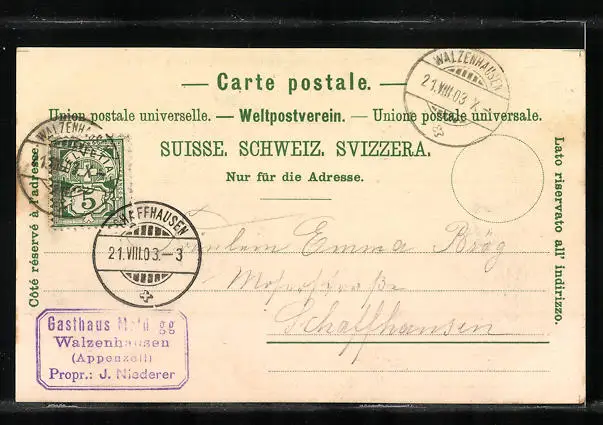 Carte postale.
Union postale universelle. — Weltpostverein. — Unione postale universale.
SUISSE. SCHWEIZ. SVIZZERA.
Nur für die Adresse.
Côté réservé à l'adresse.
Lato riservato all' indirizzo.
WALZENHAUSEN
21.VIII.03
WALZENHA
HELVETIA
5
SCHAFFHAUSEN
21.VIII.03.–3
Fräulein Emma Brög
Schaffhausen
Gasthaus gg
Walzenhausen
(Appenzell)
Propr.: J. Niederer